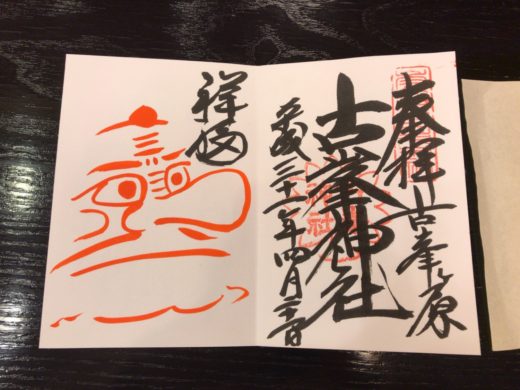 奉拝 古峯ヶ原
古峯神社
平成三十一年四月
祥福